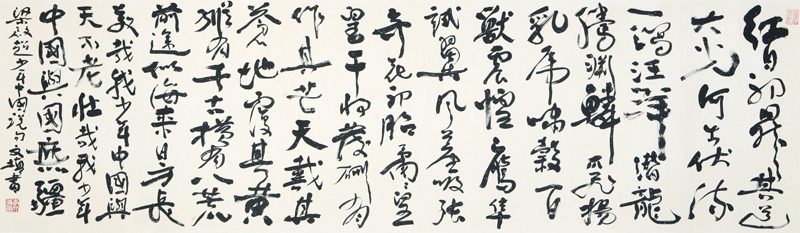 紅日初昇其道
大光河出伏流
一瀉汪洋潛龍
騰淵鱗爪飛揚
乳虎嘯穀百
獸震惶鷹隼
試翼風塵吸張
奇花初胎矞矞皇
皇干將發硎有
作其芒天戴其
蒼地履其黃
縱有千古橫有八荒
前途似海來日方長
美哉我少年中國與
天不老壯哉我少年
中國與國無疆
梁啟超少年中國說句 書